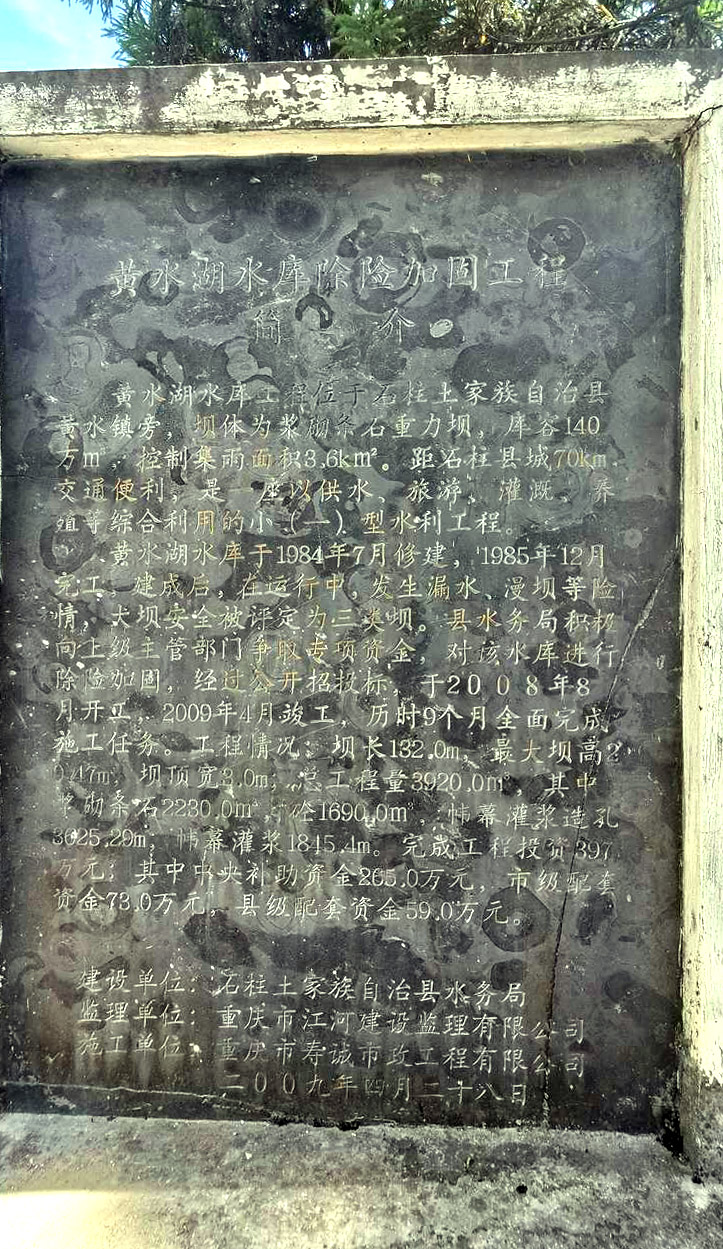 黄水湖水库除险加固工程
简介
黄水湖水库工程位于石柱土家族自治县
黄水镇旁，坝体为浆砌条石重力坝，库容140
万m³，控制集雨面积3.6km²。距石柱县城70km，
交通便利，是一座以供水、旅游、灌溉、养
殖等综合利用的小（一）型水利工程。
黄水湖水库于1984年7月修建，1985年12月
完工。建成后，在运行中，发生漏水、漫坝等险
情，大坝安全被评定为三类坝。县水务局积极
向上级主管部门争取专项资金，对该水库进行
除险加固，经过公开招投标，于2008年8
月开工，2009年4月竣工，历时9个月全面完成
施工任务。工程情况：坝长132.0m，最大坝高2
0.47m，坝顶宽3.0m，总工程量3920.0m³，其中
浆砌条石2230.0m³，砼1690.0m³，帏幕灌浆造孔
3625.29m，帏幕灌浆1845.4m。完成工程投资397
万元；其中中央补助资金265.0万元，市级配套
资金73.0万元，县级配套资金59.0万元。
建设单位：石柱土家族自治县水务局
监理单位：重庆市江河建设监理有限公司
施工单位：重庆市寿诚市政工程有限公司
二00九年四月二十八日